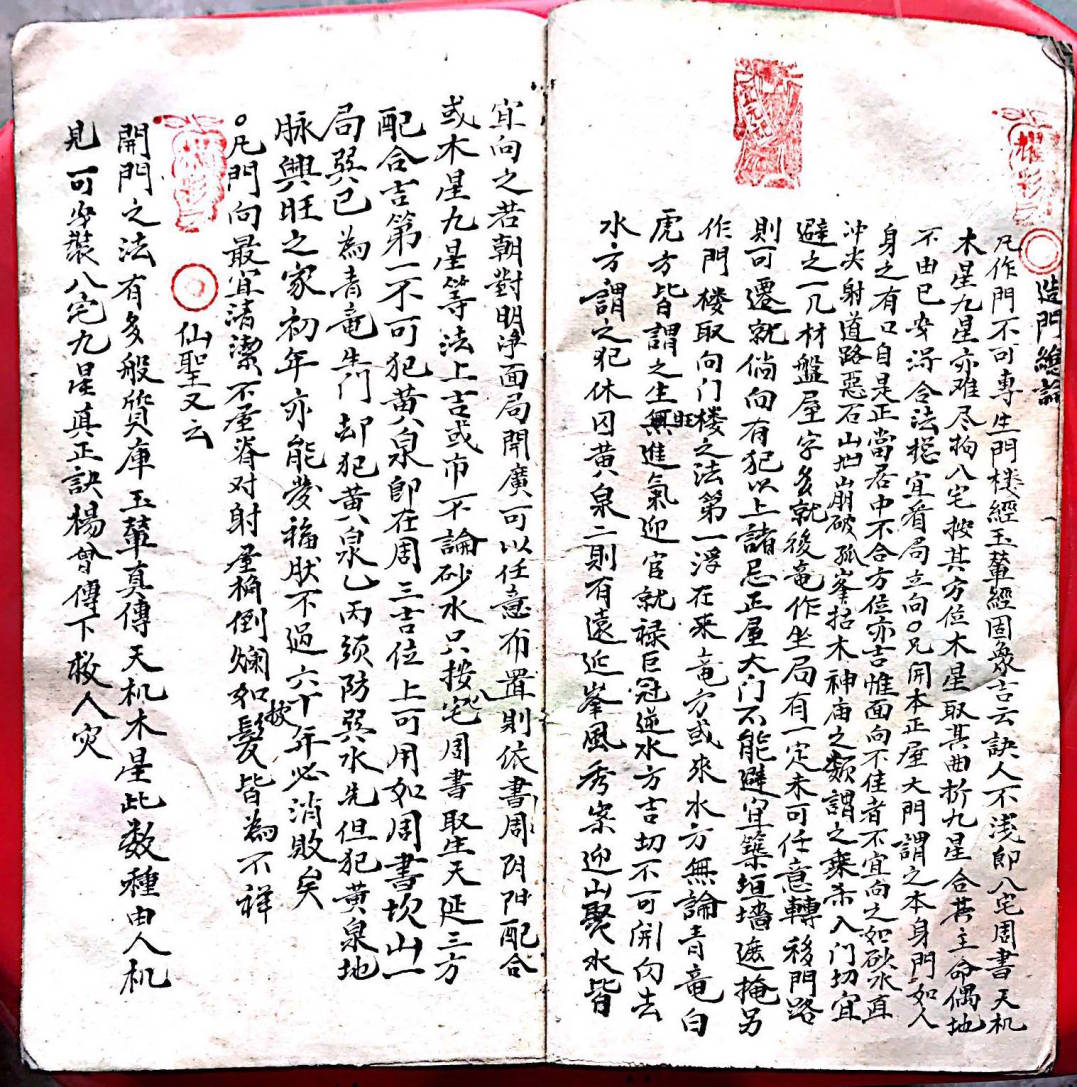 造門總論
凡作門不可專生門楼經玉輦經固衆言云訣人不浅郎八宅周書天机
木星九星亦难尽拘八宅按其方位木星取其曲折九星合其主命偶地
不由已安得令法挖宜看局立向○凡開本正屋大門謂之本身門如人
身之有口自是正當居中不合方位亦吉惟面向不佳者不宜向之如砂水直
冲尖射道路惡石山坳崩破孤峯枯木神庙之類謂之乘杀入门切宜
避之一凡材盤屋字多就後竜作坐局有一定未可任意轉移門路
則可遷就倘向有犯以上諸忌正屋大门不能避宜築垣墻遮掩另
作門楼取向门楼之法第一浮在來竜方或來水方無論青竜白
虎方皆謂之生旺進氣迎官就禄巨冠逆水方吉切不可開向去
水方謂之犯休囚黄泉二則有遠近峯風秀案迎山聚水皆
宜向之若朝對明净面局開廣可以任意布置則依書周阴阳配合
或木星九星等法上吉或巾不論砂水只按八宅周書取生天延三方
配合吉第一不可犯黄泉郎在周三吉位上可用如周書坎山一
局巽巳為青竜生门却犯黄泉乙丙须防巽水先但犯黄泉地
脉興旺之家初年亦能发福肰不過六十年必消败矣
○凡門向最宜清潔不屋脊对射屋桷倒爛如披髮皆為不祥
仙聖又云
開門之法有多般質庫玉輦真傳天机木星此数種由人机
見可安裝八宅九星真正訣楊曾傳下救人灾